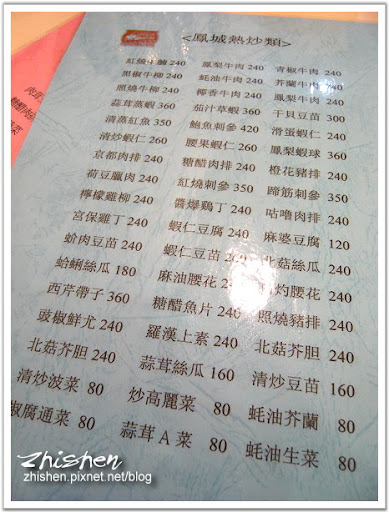 <鳳城熱炒類>
紅燒牛腩 240 鳳梨牛肉 240 青椒牛肉 240
黑椒牛柳 240 蚝油牛肉 240 芥蘭牛肉 240
照燒牛柳 240 椰香牛肉 240 鳳梨牛肉 240
蒜茸蒸蝦 360 茄汁草蝦 360 干貝豆苗 300
清蒸紅魚 350 鮑魚刺參 420 滑蛋蝦仁 240
清炒蝦仁 260 腰果蝦仁 260 鳳梨蝦球 360
京都肉排 240 糖醋肉排 240 橙花豬排 240
荷豆臘肉 240 紅燒刺參 350 蹄筋刺參 350
檸檬雞柳 240 醬爆鷄丁 240 咕嚕肉排 240
宮保雞丁 240 蝦仁豆腐 240 麻婆豆腐 120
蚧肉豆苗 240 蝦仁豆苗 240 北菇絲瓜 240
蛤蜊絲瓜 180 麻油腰花 240 灼腰花 240
西芹帶子 360 糖醋魚片 240 照燒豬排 240
豉椒鮮尤 240 羅漢上素 240 北菇芥胆 240
北菇芥胆 240 蒜茸絲瓜 160 清炒豆苗 160
清炒菠菜 80 炒高麗菜 80 蚝油芥蘭 80
椒腐通菜 80 蒜茸A菜 80 蚝油生菜 80
zhishen
zhishen.pixnet.net/blog